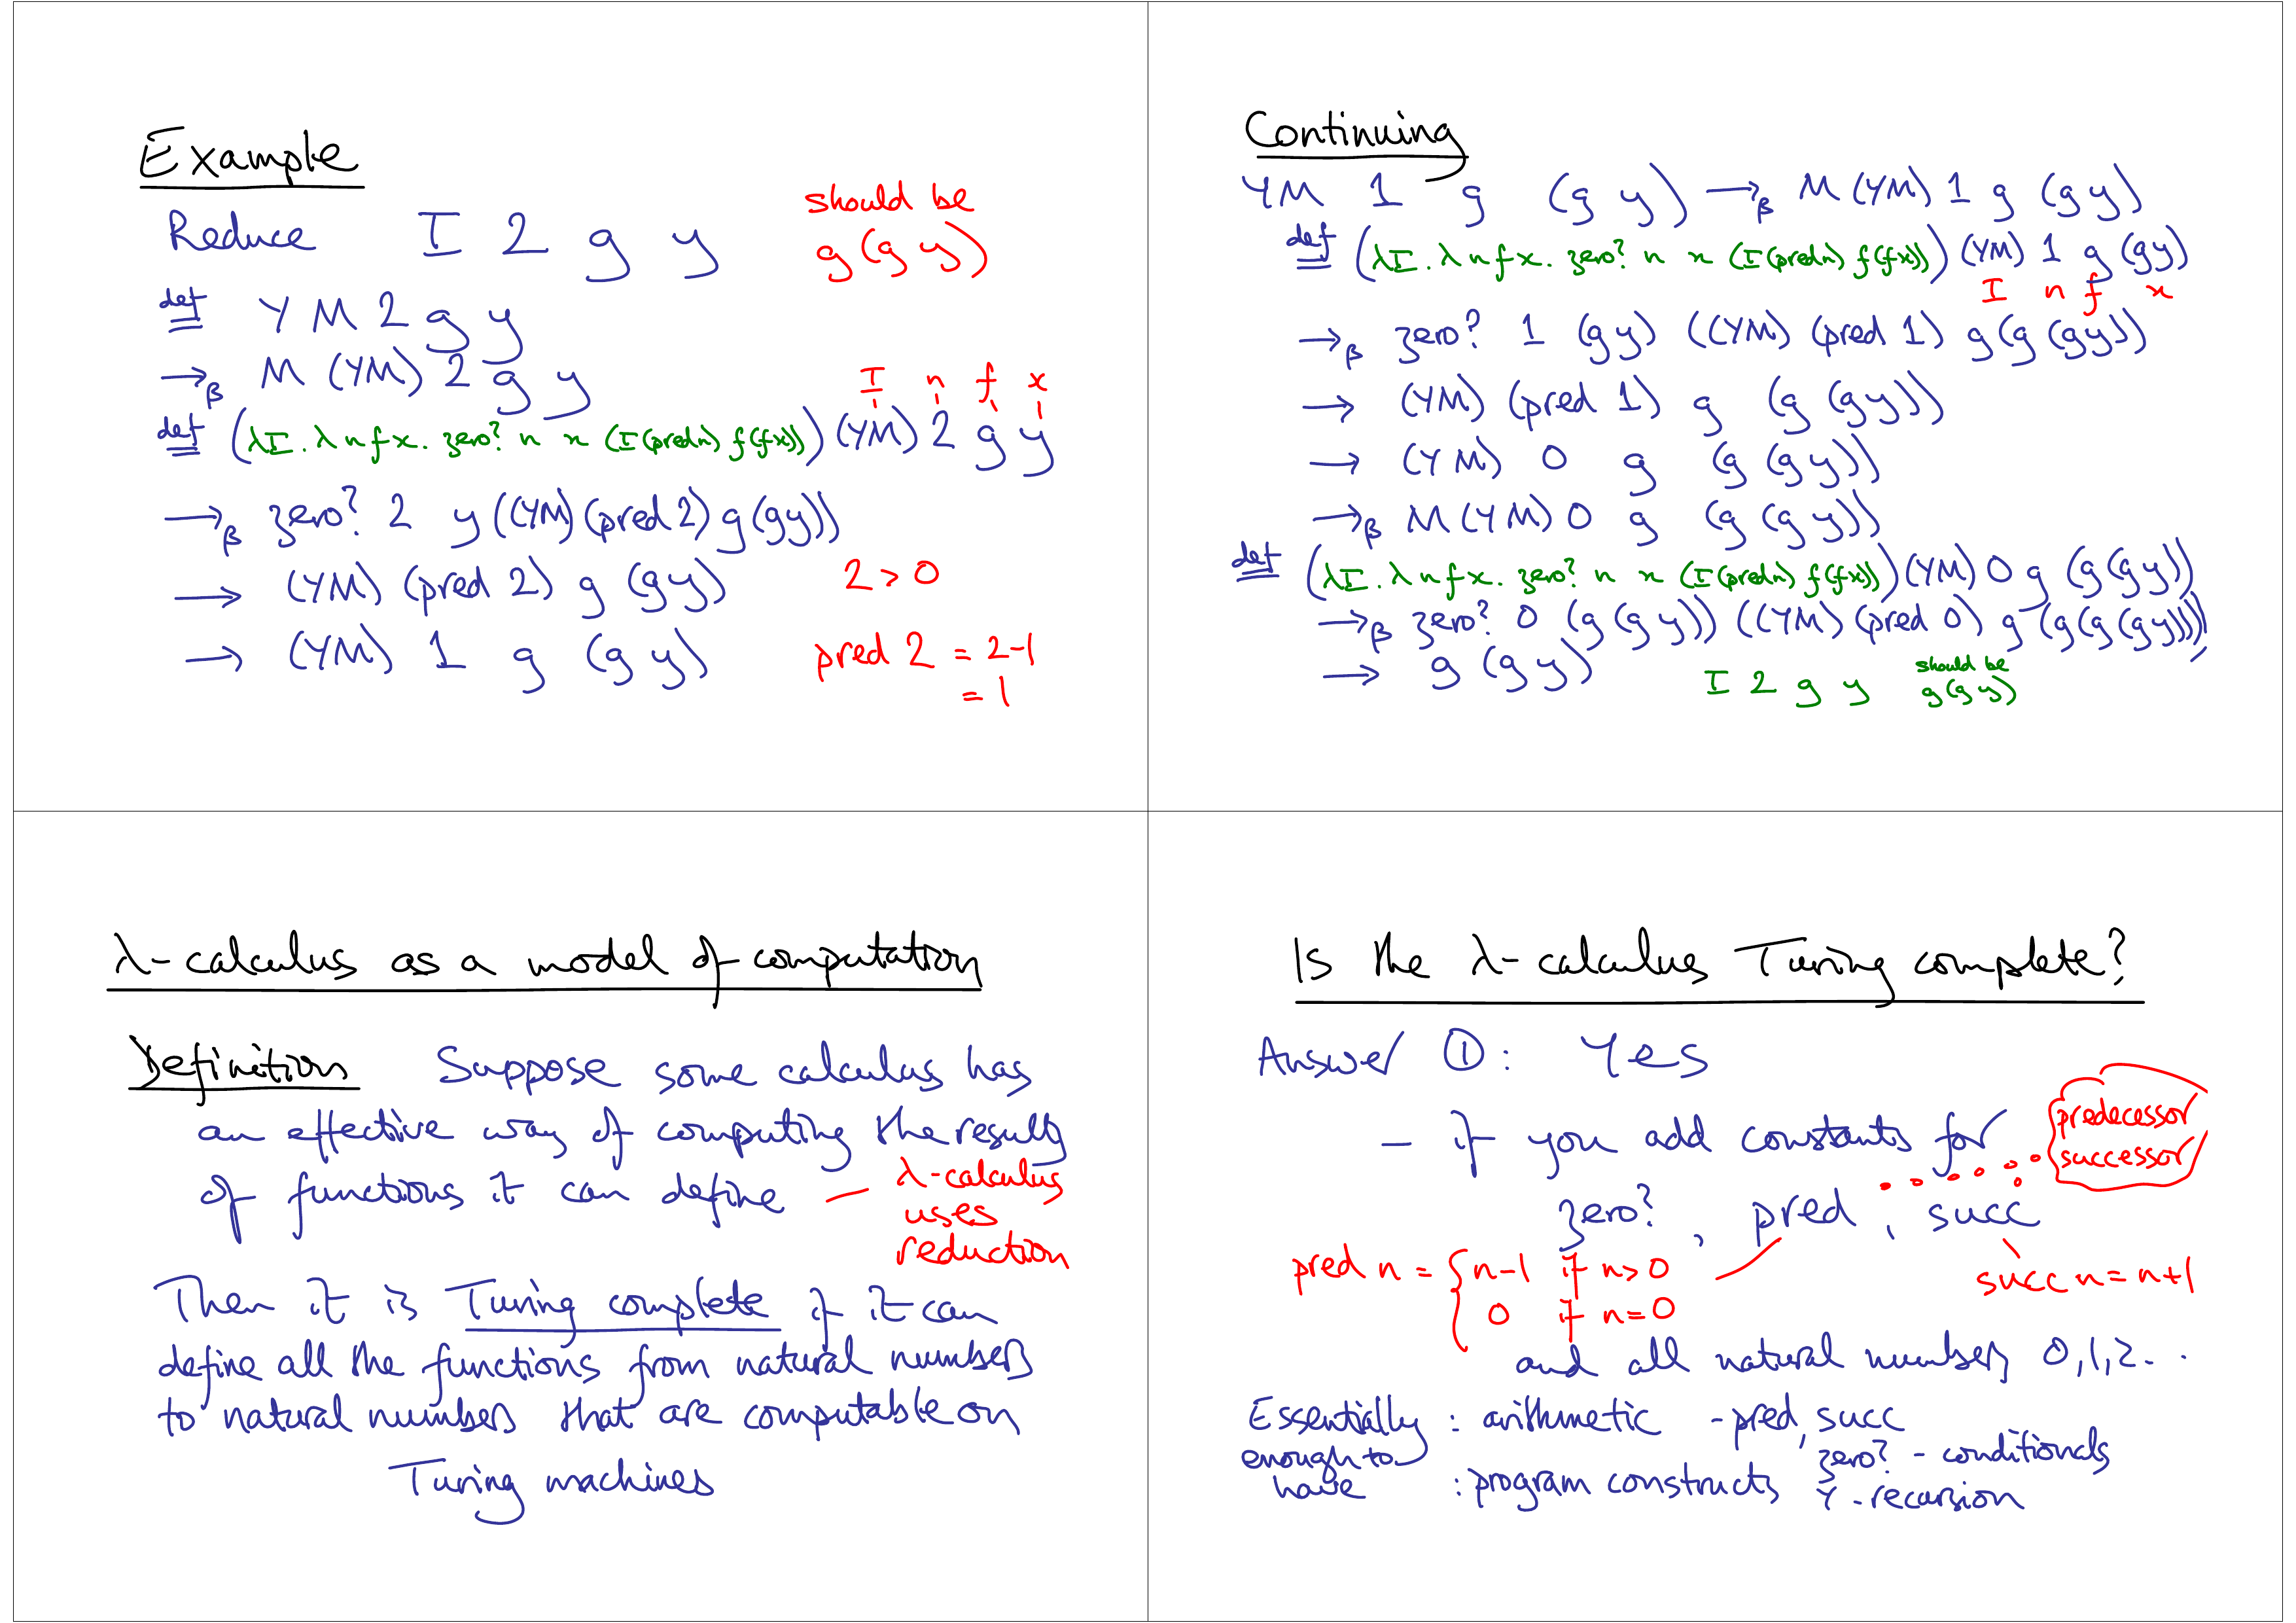 Example
Reduce I 2 g y should be g (g y)
def = Y M 2 g y
→β M (YM) 2 g y
I n f x
def = (λI. λ n f x. zero? n x (I (pred n) f (f x))) (YM) 2 g y
→β zero? 2 y ((YM) (pred 2) g (g y))
→ (YM) (pred 2) g (g y) 2 > 0
→ (YM) 1 g (g y) pred 2 = 2-1
= 1
Continuing
YM 1 g (g y) →β M (YM) 1 g (g y)
def = (λI. λ n f x. zero? n x (I (pred n) f (f x))) (YM) 1 g (g y)
I n f x
→β zero? 1 (g y) ((YM) (pred 1) g (g (g y)))
→ (YM) (pred 1) g (g (g y))
→ (YM) 0 g (g (g y))
→β M (YM) 0 g (g (g y))
def = (λI. λ n f x. zero? n x (I (pred n) f (f x))) (YM) 0 g (g (g y))
→β zero? 0 (g (g y)) ((YM) (pred 0) g (g (g (g y))))
→ g (g y) I 2 g y should be g (g y)
λ-calculus as a model of computation
Definition Suppose some calculus has
an effective way of computing the results
of functions it can define — λ-calculus
uses
reduction
Then it is Turing complete if it can
define all the functions from natural numbers
to natural numbers that are computable on
Turing machines
Is the λ-calculus Turing complete?
Answer ①: Yes
- if you add constants for
predecessor
successor
zero?, pred, succ
pred n = { n-1 if n>0
0 if n=0
succ n = n+1
and all natural numbers 0,1,2..
Essentially : arithmetic - pred, succ
enough to zero? - conditionals
have : program constructs Y - recursion